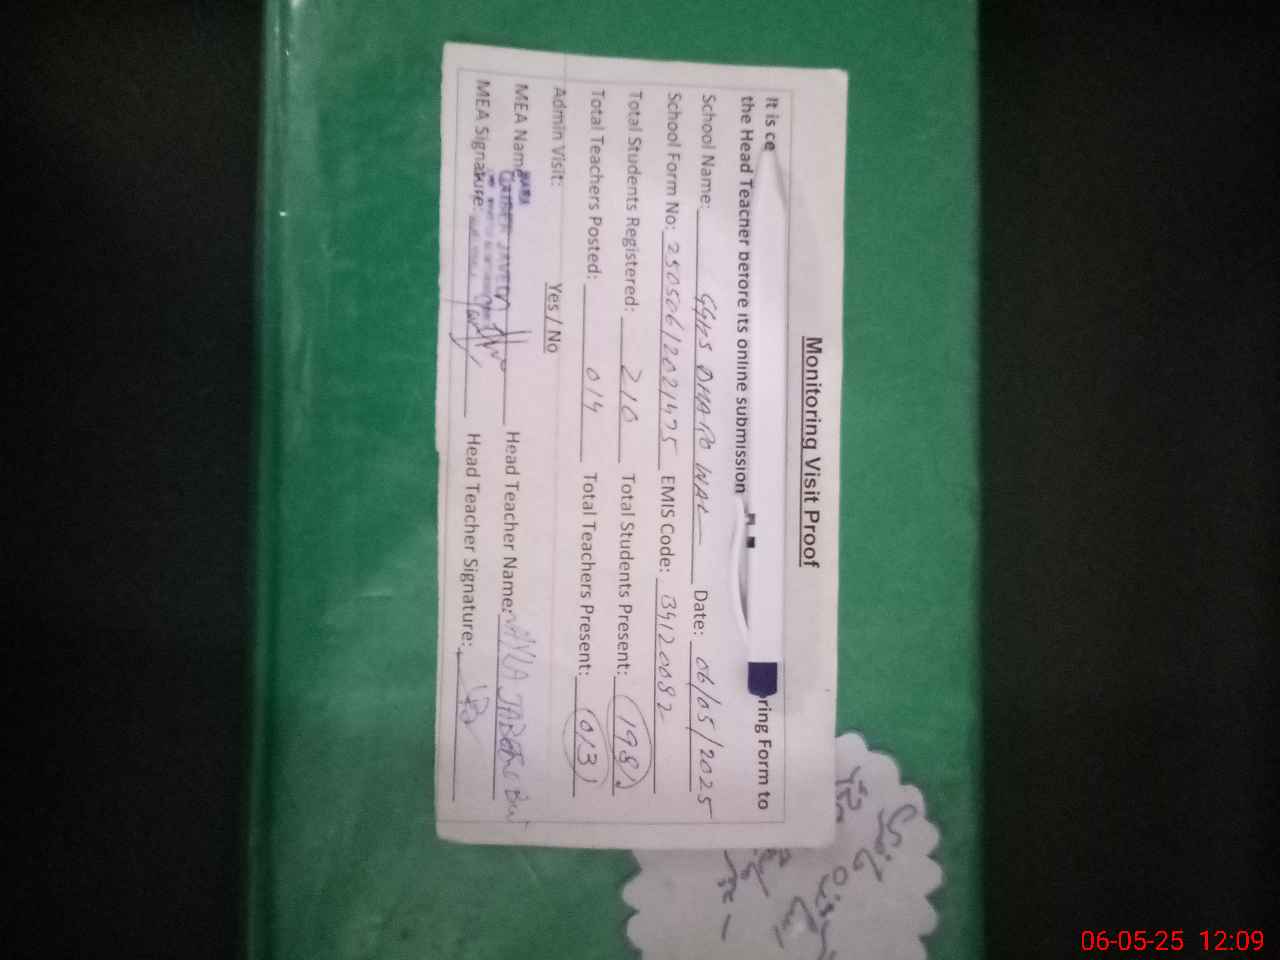 Monitoring Visit Proof
It is ce ring Form to
the Head Teacher before its online submission
School Name: GGHS DHARO WAL Date: 06/05/2025
School Form No: 250506/2021475 EMIS Code: 34120082
Total Students Registered: 210 Total Students Present: 198
Total Teachers Posted: 014 Total Teachers Present: 013
Admin Visit: Yes / No
MEA Name JAVED Head Teacher Name:
MEA Signature: Head Teacher Signature:
06-05-25 12:09